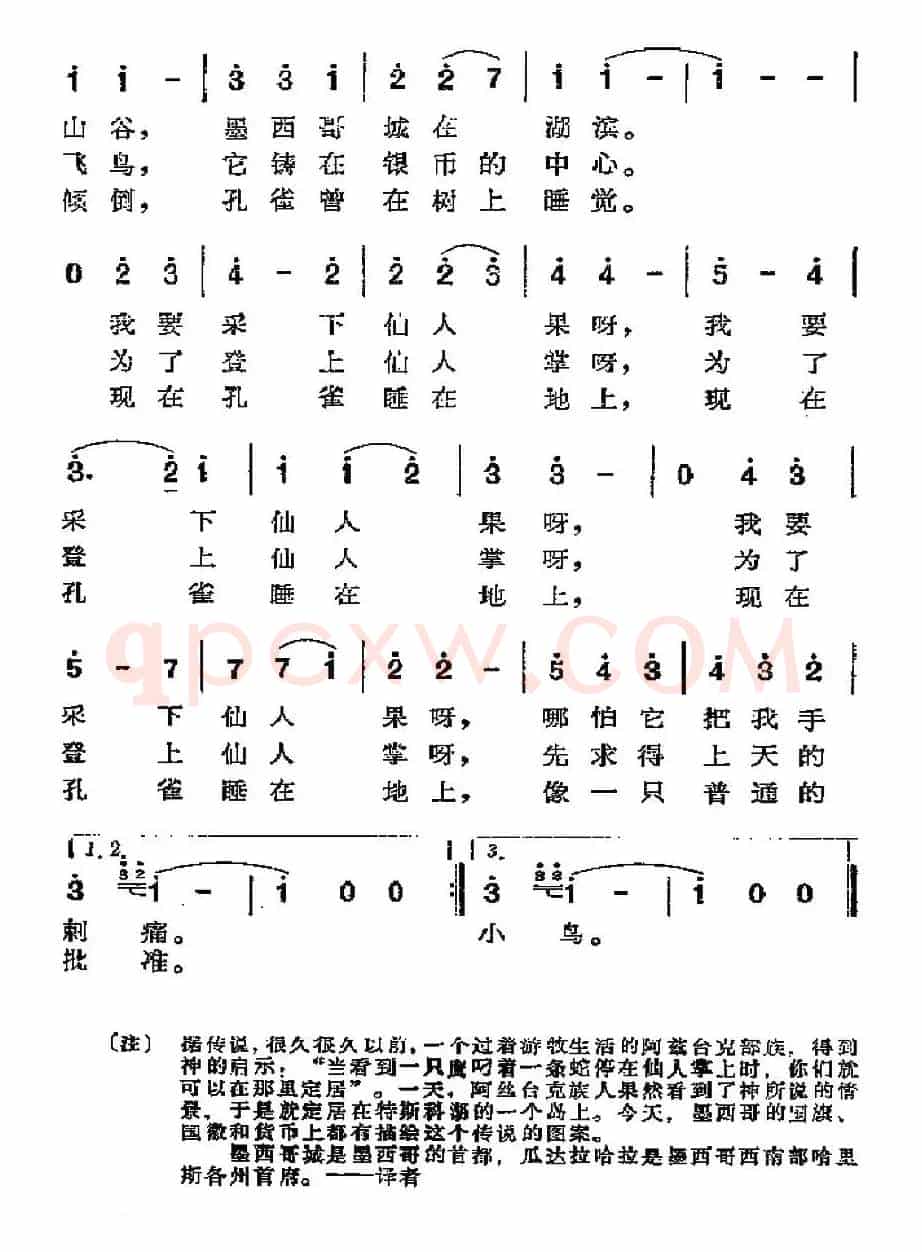 1 1 - | 3 3 1 | 2 2 7 | 1 1 - | 1 - - |
山谷， 墨西哥 城在 湖滨。
飞鸟， 它铸在 银币的 中心。
倾倒， 孔雀曾 在树上 睡觉。
0 2 3 | 4 - 2 | 2 2 3 | 4 4 - | 5 - 4 |
我要 采 下 仙人 果呀， 我 要
为了 登 上 仙人 掌呀， 为 了
现在 孔 雀 睡在 地上， 现 在
3. 2 1 | 1 1 2 | 3 3 - | 0 4 3 |
采 下 仙人 果呀， 我要
登 上 仙人 掌呀， 为了
孔 雀 睡在 地上， 现在
qpcxw.COM
5 - 7 | 7 7 1 | 2 2 - | 5 4 3 | 4 3 2 |
采 下 仙人 果呀， 哪怕它 把我手
登 上 仙人 掌呀， 先求得 上天的
孔 雀 睡在 地上， 像一只 普通的
1. 2. 3.
3 3 2 1 - | 1 0 0 :| 3 3 2 1 - | 1 0 0 |
刺 痛。 小 鸟。
批 准。
〔注〕 据传说，很久很久以前，一个过着游牧生活的阿兹台克部族，得到
神的启示：“当看到一只鹰叼着一条蛇停在仙人掌上时，你们就
可以在那里定居”。一天，阿丝台克族人果然看到了神所说的情
景，于是就定居在特斯科湖的一个岛上。今天，墨西哥的国旗、
国徽和货币上都有描绘这个传说的图案。
墨西哥城是墨西哥的首都，瓜达拉哈拉是墨西哥西南部哈里
斯各州首席。——译者